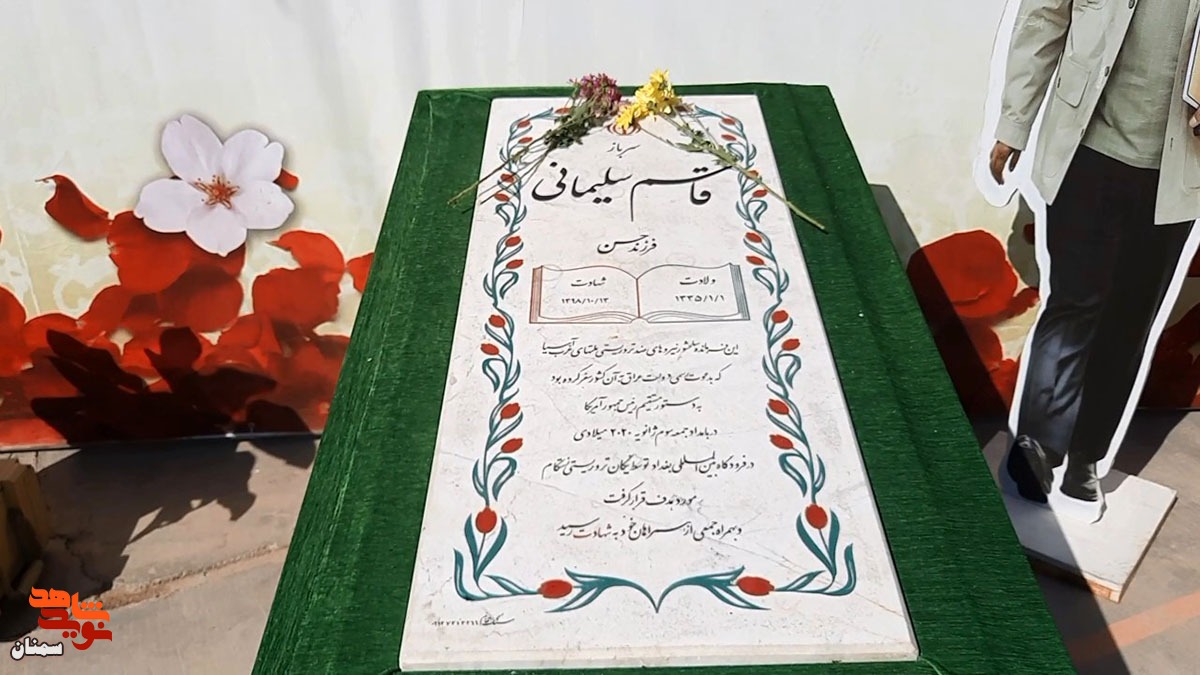 سرباز
قاسم سلیمانی
فرزند حسن
ولادت
۱۳۳۵/۱/۱
شهادت
۱۳۹۸/۱۰/۱۳
این فرمانده سلحشور نیروهای ضد تروریستی ملتهای غرب آسیا
که به دعوت رسمی دولت عراق به آن کشور سفر کرده بود
به دستور مستقیم رئیس جمهور آمریکا
در بامداد جمعه سوم ژانویه ۲۰۲۰ میلادی
در فرودگاه بین المللی بغداد توسط یگان تروریستی سنتکام
مورد هدف قرار گرفت
و به همراه جمعی از همراهان خود به شهادت رسید
نوید شاهد
سمنان